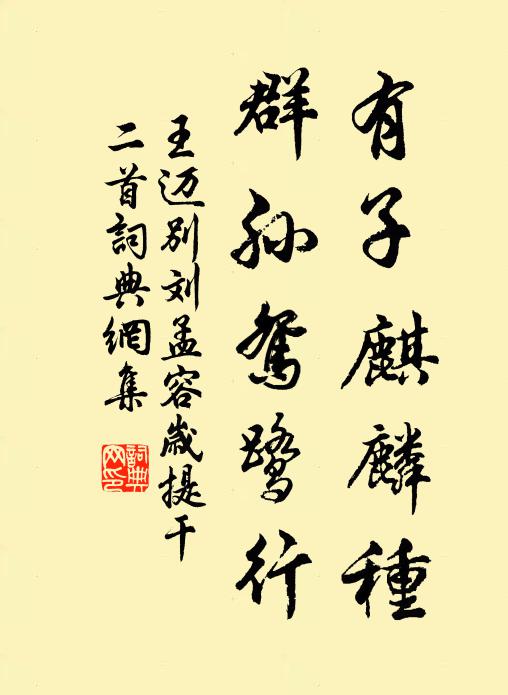 有子麒麟種
群孙鴛鷺行
王迈别刘孟容歲提干
二首詞典網集
詞典
网印